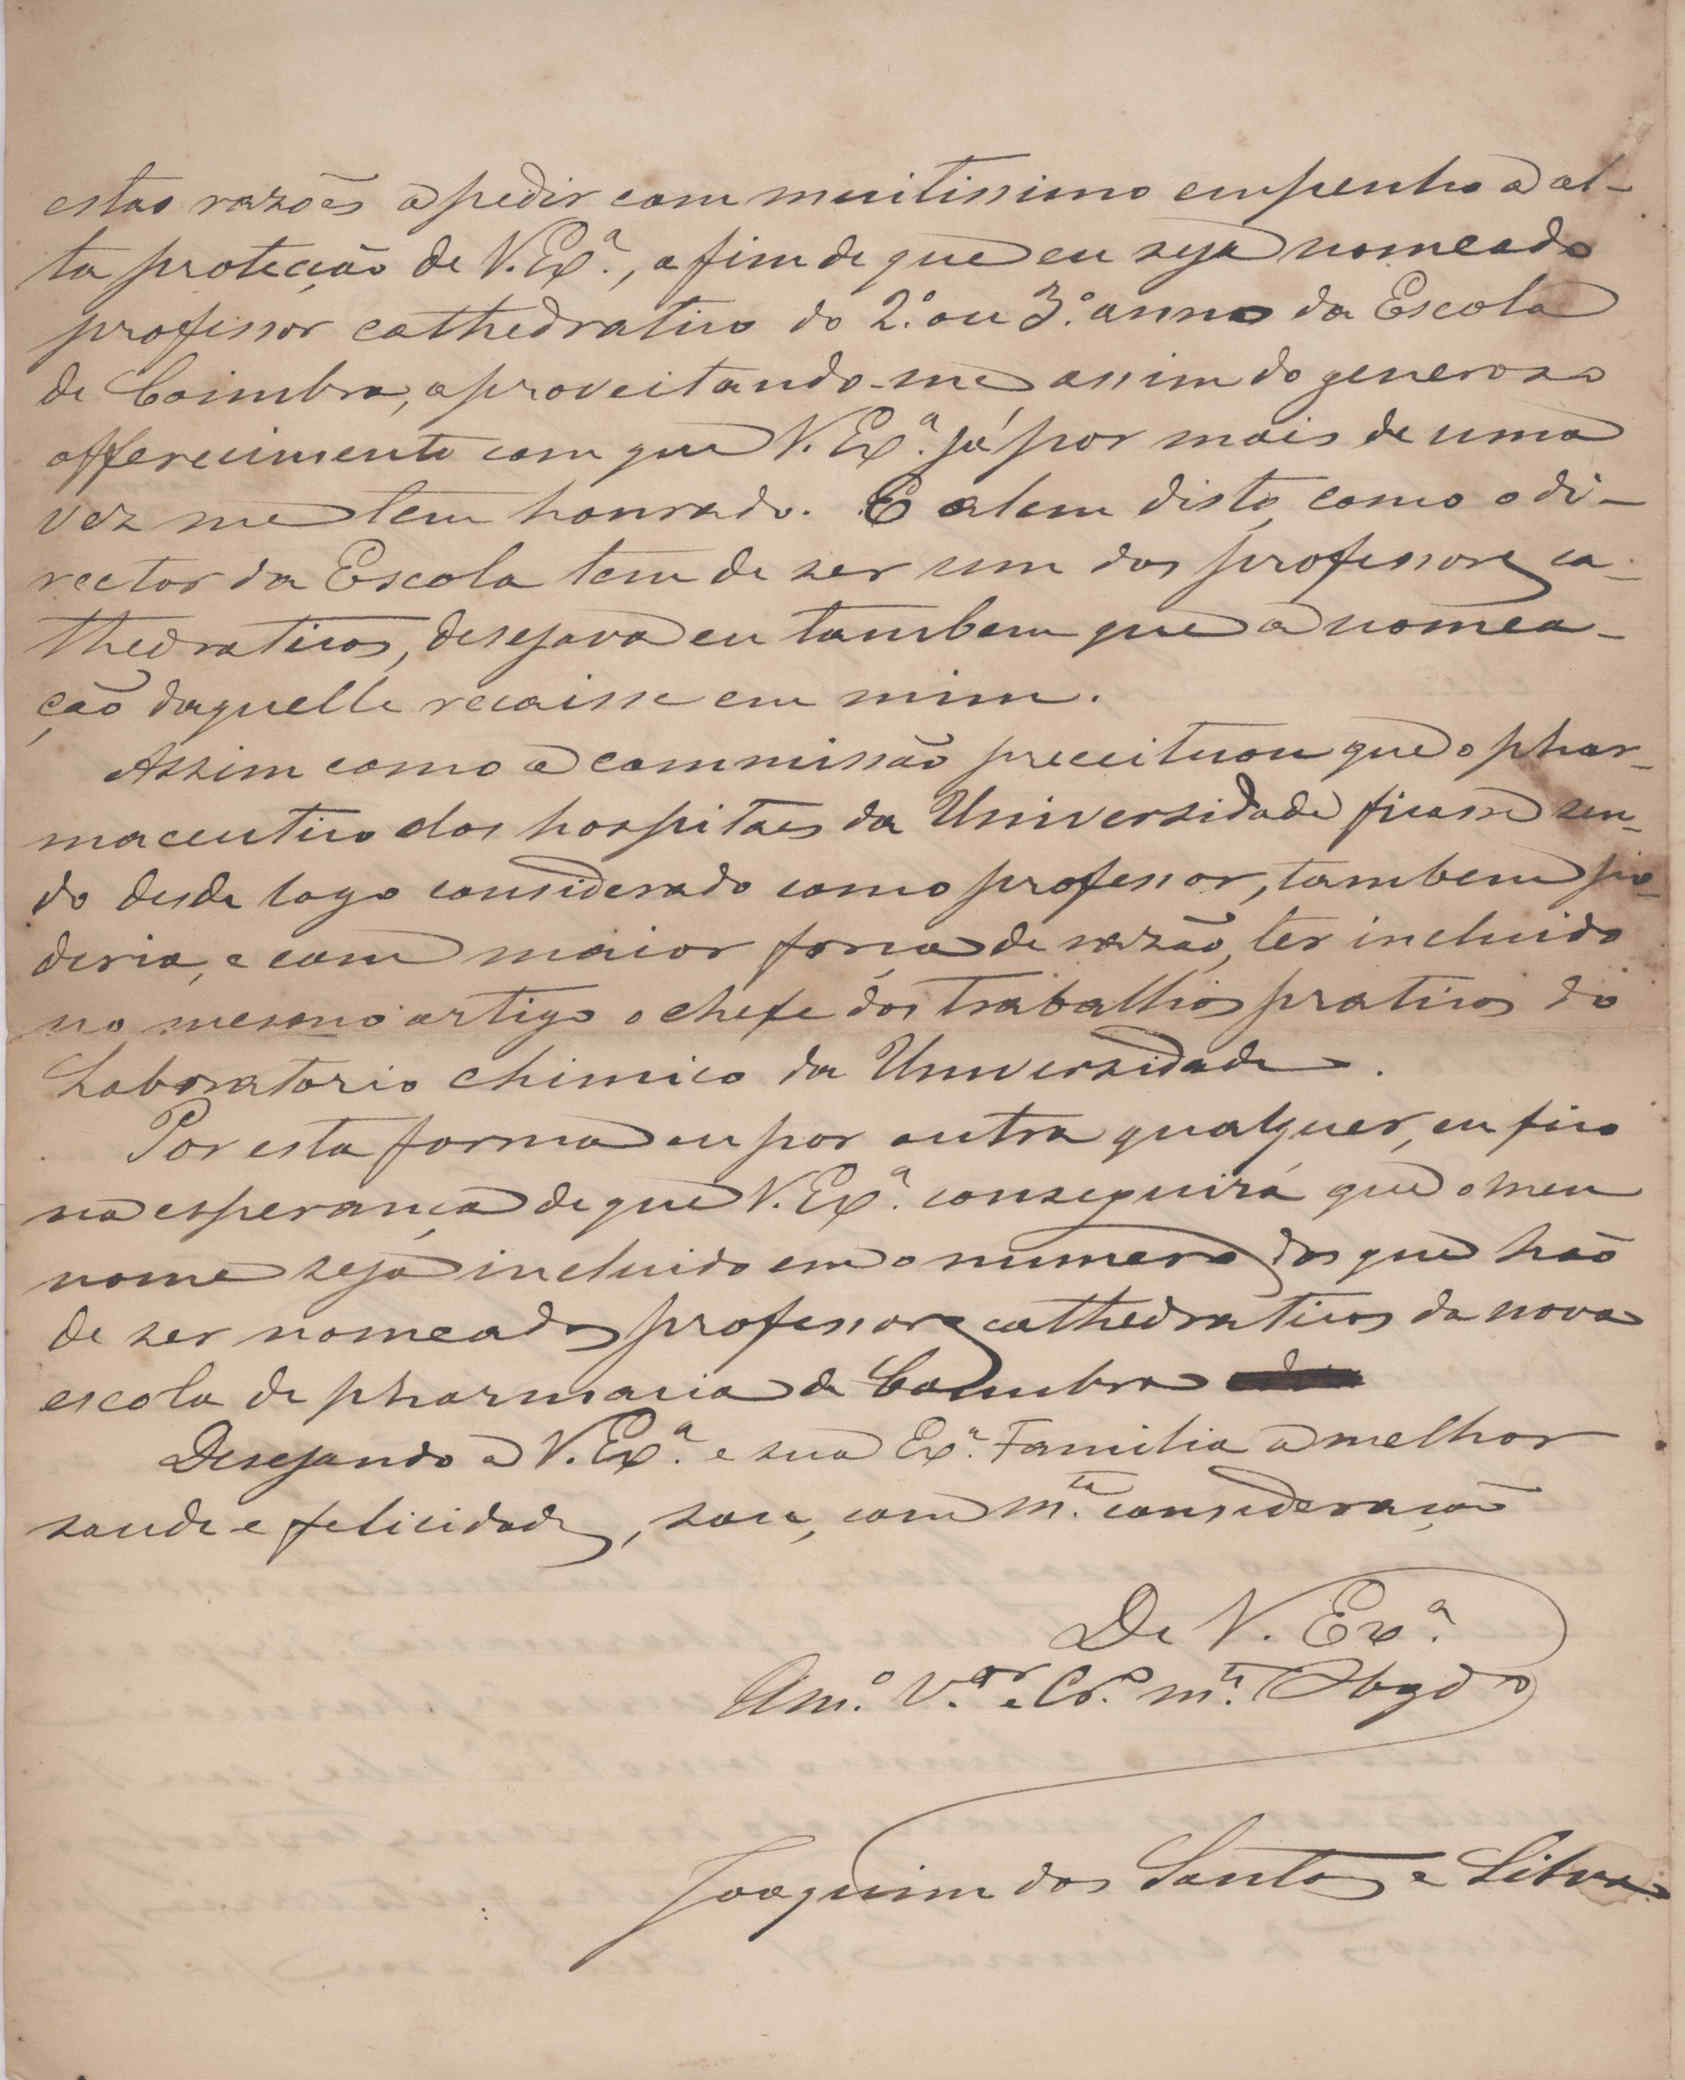 estas razões a pedir com muitissimo empenho a al-
ta protecção de V. Exª., a fim de que eu seja nomeado
professor cathedratico do 2.º ou 3.º anno da Escola
de Coimbra, aproveitando-me assim do generoso
offerecimento com que V. Exª. já por mais de uma
vez me tem honrado. E alem disto, como o di-
rector da Escola tem de ser um dos professores ca-
thedraticos, desejava eu tambem que a nomea-
ção daquelle recaisse em mim.
Assim como a commissão preceituou que o phar-
maceutico dos hospitaes da Universidade ficasse sen-
do desde logo considerado como professor, tambem po-
deria, e com maior força de razão, ter incluido
no mesmo artigo o chefe dos trabalhos praticos do
Laboratorio chimico da Universidade.
Por esta forma ou por outra qualquer, eu fico
na esperança de que V. Exª. conseguirá que o meu
nome seja incluido em o numero dos que hão
de ser nomeados professores cathedraticos da nova
escola de pharmacia de Coimbra
Desejando a V. Exª. e sua Exª. Familia a melhor
saude e felicidade, sou, com m.ta consideração
De V. Exª.
Am.º V.or e Cr.º m.to Obgdo
Joaquim dos Santos e Silva